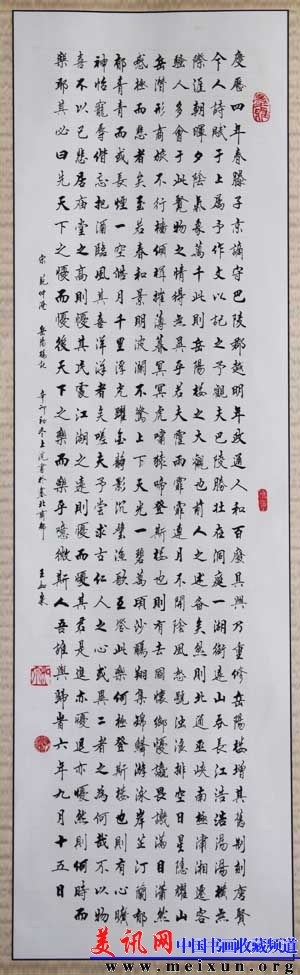 慶歷四年春滕子京謫守巴陵郡越明年政通人和百廢具興乃重修岳陽樓增其舊制刻唐賢
今人詩賦于上屬予作文以記之予觀夫巴陵勝狀在洞庭一湖銜遠山吞長江浩浩湯湯橫無
際涯朝暉夕陰氣象萬千此則岳陽樓之大觀也前人之述备矣然則北通巫峽南極瀟湘遷客
騷人多會于此覽物之情得無異乎若夫霪雨霏霏連月不開陰風怒號濁浪排空日星隱耀山
岳潛形商旅不行檣傾楫摧薄暮冥冥虎嘯猿啼登斯樓也則有去國懷鄉憂讒畏譏滿目蕭然
感極而悲者矣至若春和景明波瀾不驚上下天光一碧萬頃沙鷗翔集錦鱗游泳岸芷汀蘭郁
郁青青而或長煙一空皓月千里浮光躍金靜影沉璧漁歌互答此樂何極登斯樓也則有心曠
神怡寵辱偕忘把酒臨風其喜洋洋者矣嗟夫予嘗求古仁人之心或異二者之為何哉不以物
喜不以己悲居廟堂之高則憂其民處江湖之遠則憂其君是進亦憂退亦憂然則何時而
樂耶其必曰先天下之憂而憂後天下之樂而樂乎噫微斯人吾誰與歸時六年九月十五日
宋 范仲淹 岳陽樓記 辛卯初冬上浣書於塞北商都 王東
美讯网 中国书画收藏频道
www.meixun.org